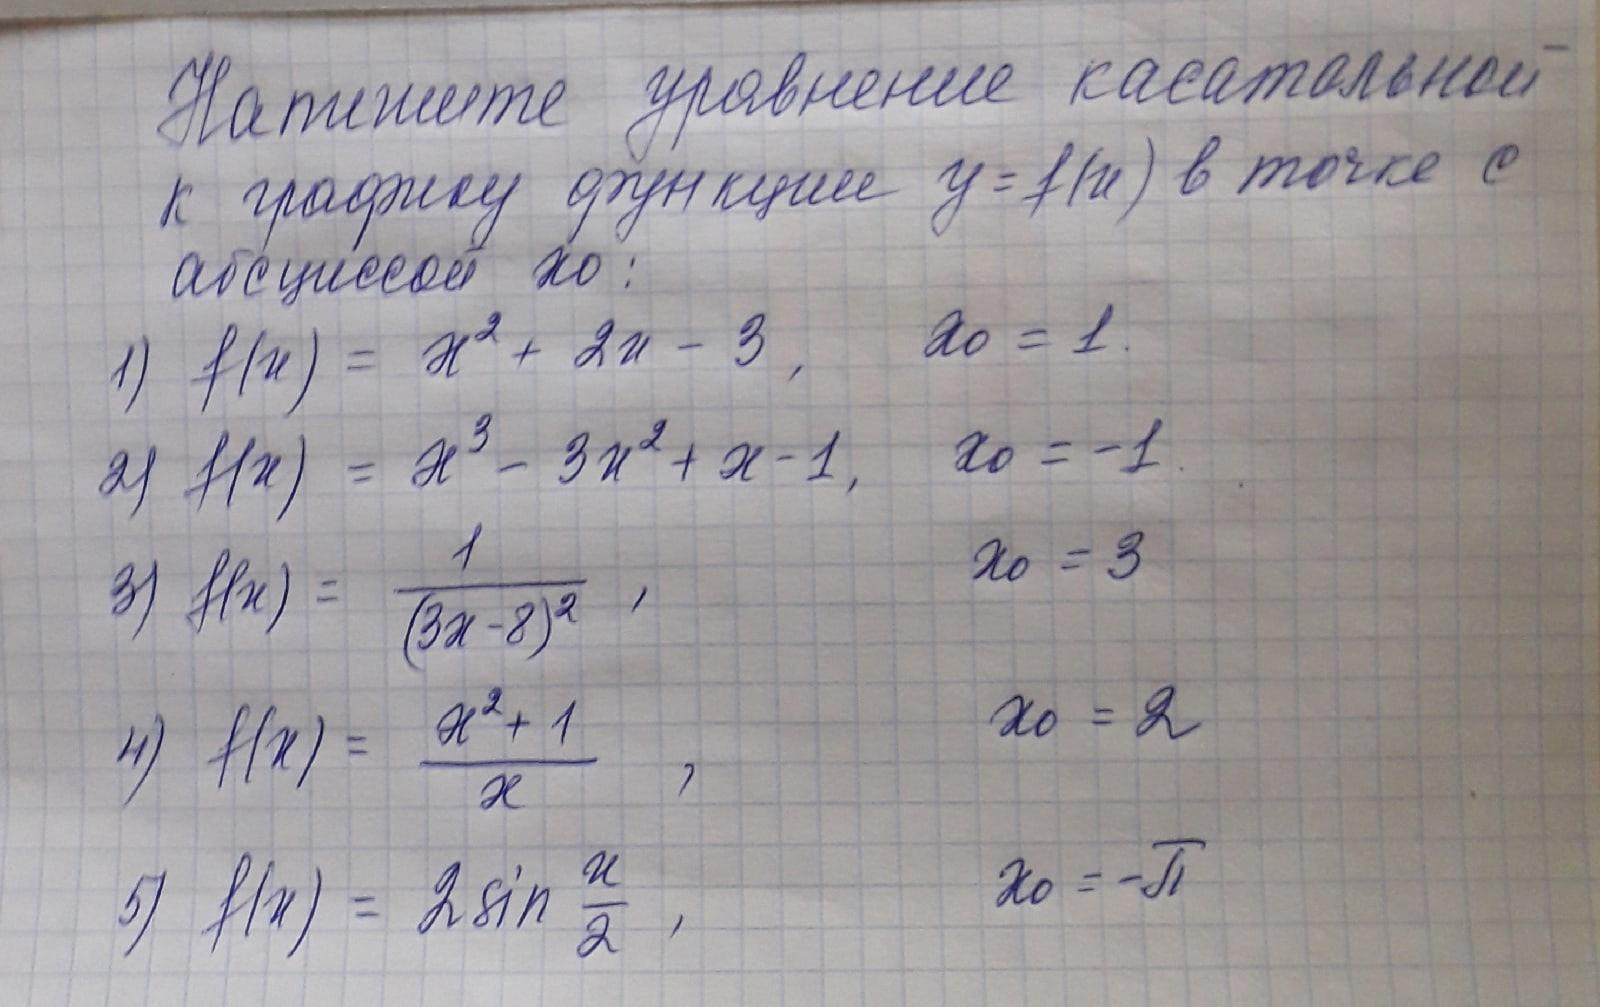 Напишите уравнение касательной
к графику функции y = f(x) в точке с
абсциссой x₀:
1) f(x) = x² + 2x - 3, x₀ = 1.
2) f(x) = x³ - 3x² + x - 1, x₀ = -1.
3) f(x) = 1/(3x-8)², x₀ = 3
4) f(x) = (x² + 1)/x, x₀ = 2
5) f(x) = 2 sin x/2, x₀ = -π